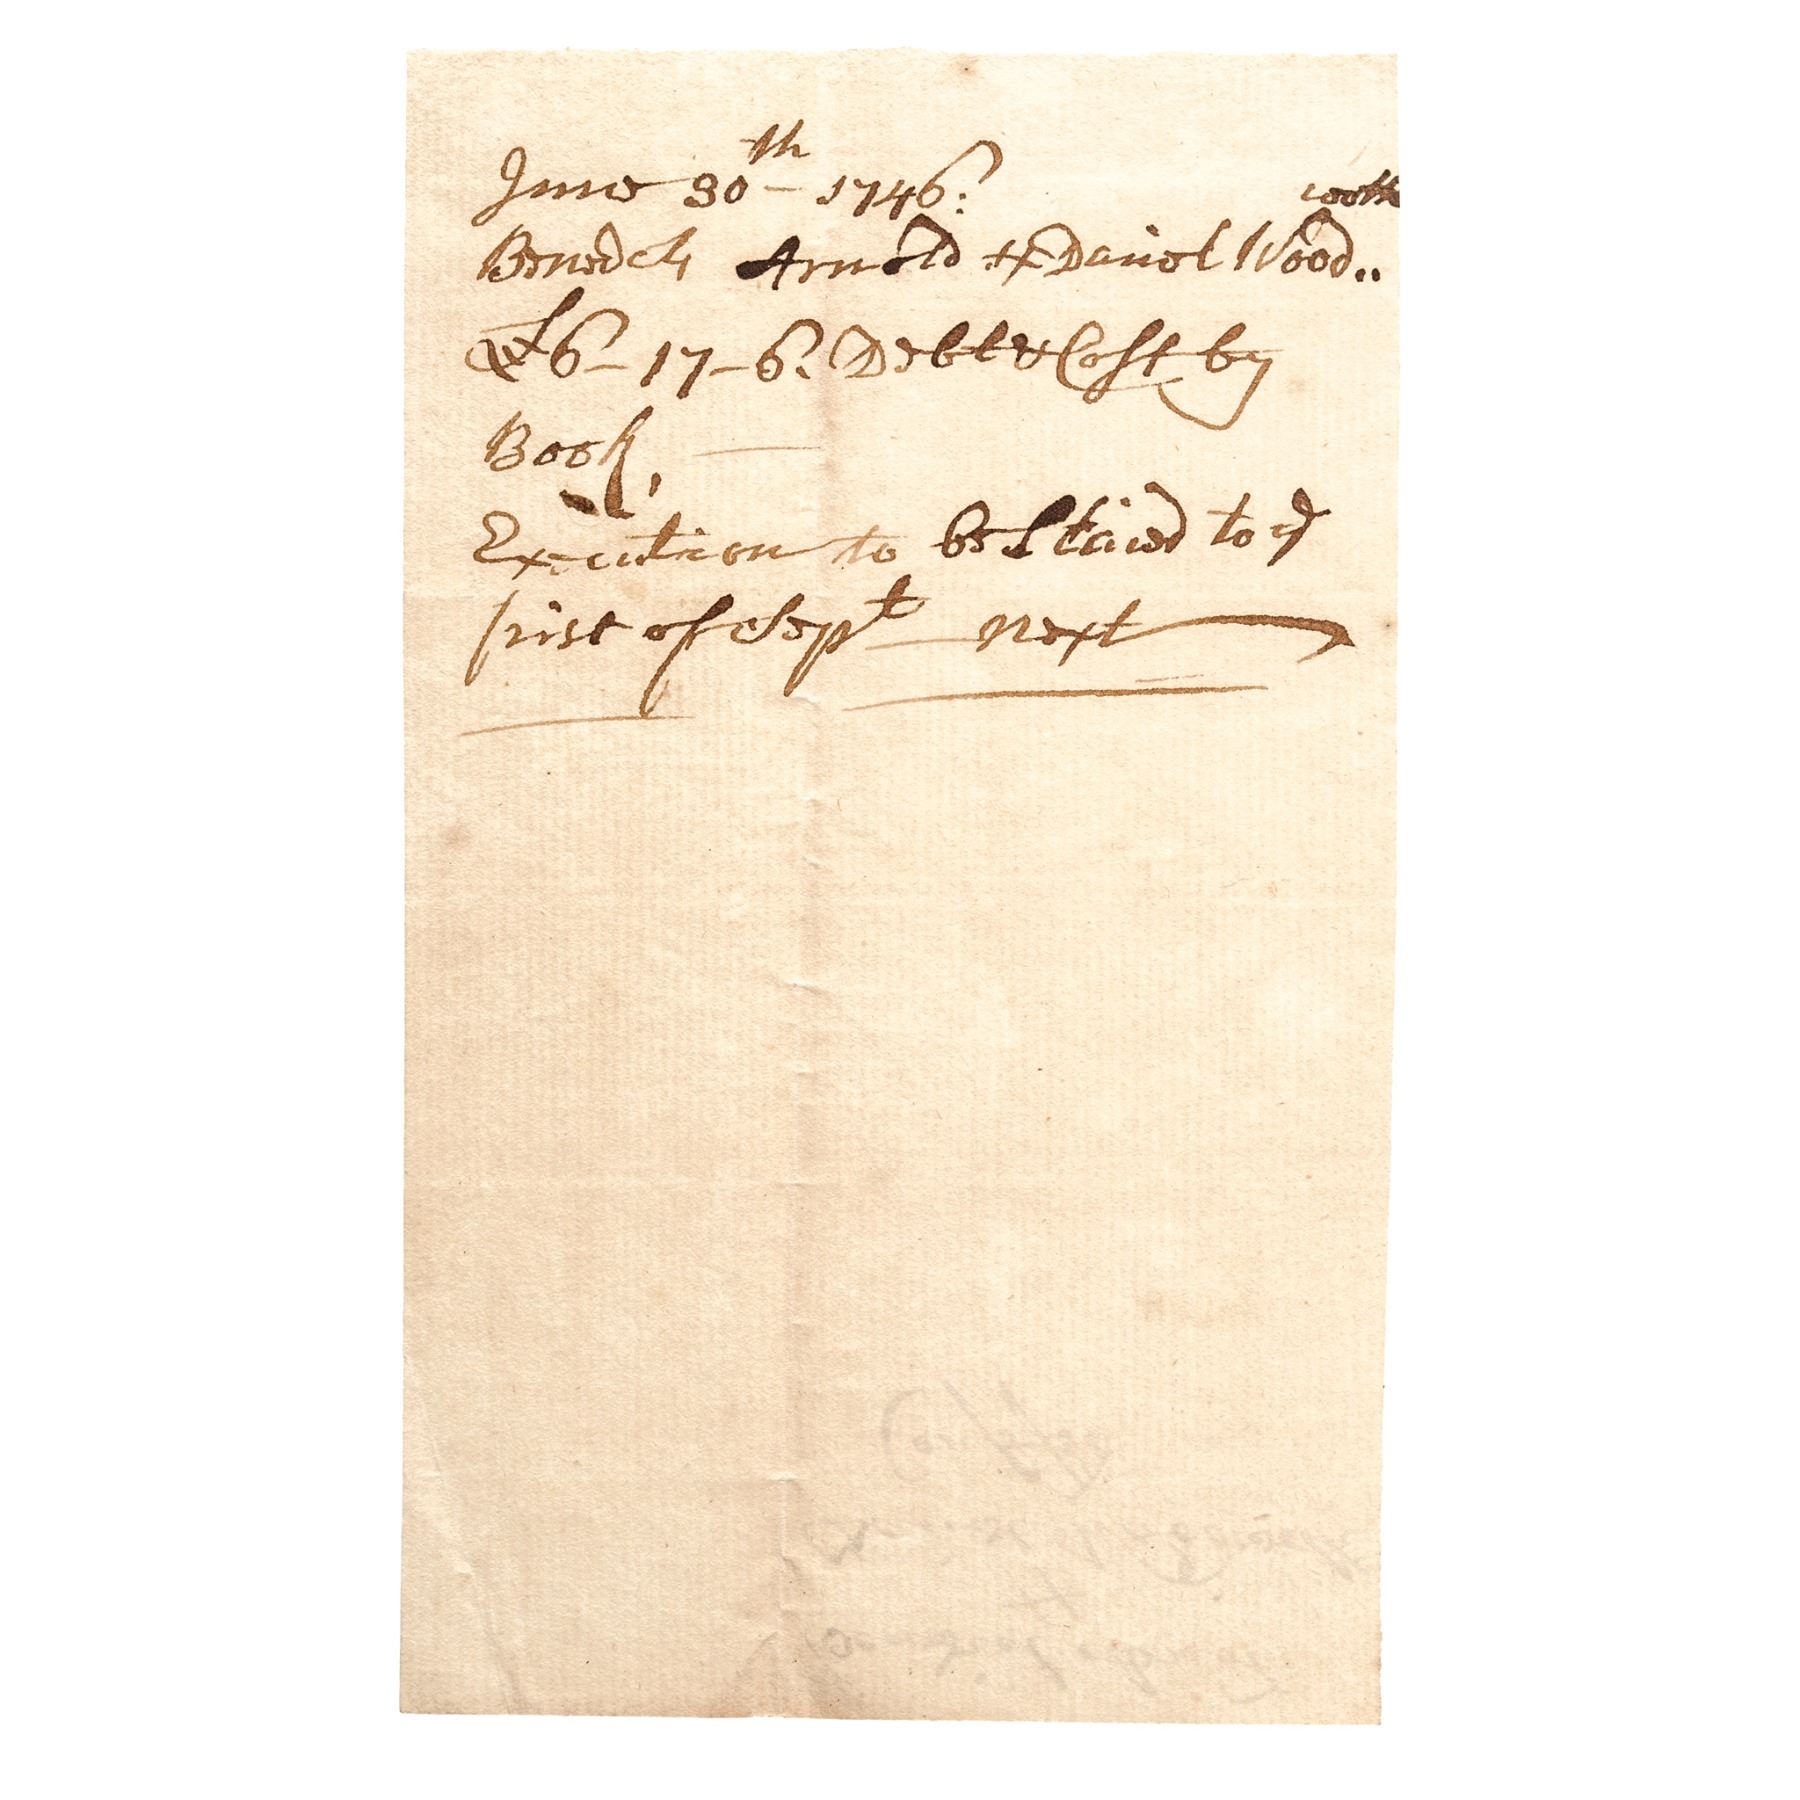 June 30th - 1746:
Benedck Arnold & Daniel Wood..
£6 - 17 - 6. Debt & Cost by
Book,
Execution to be Staied to ye
first of Sept next